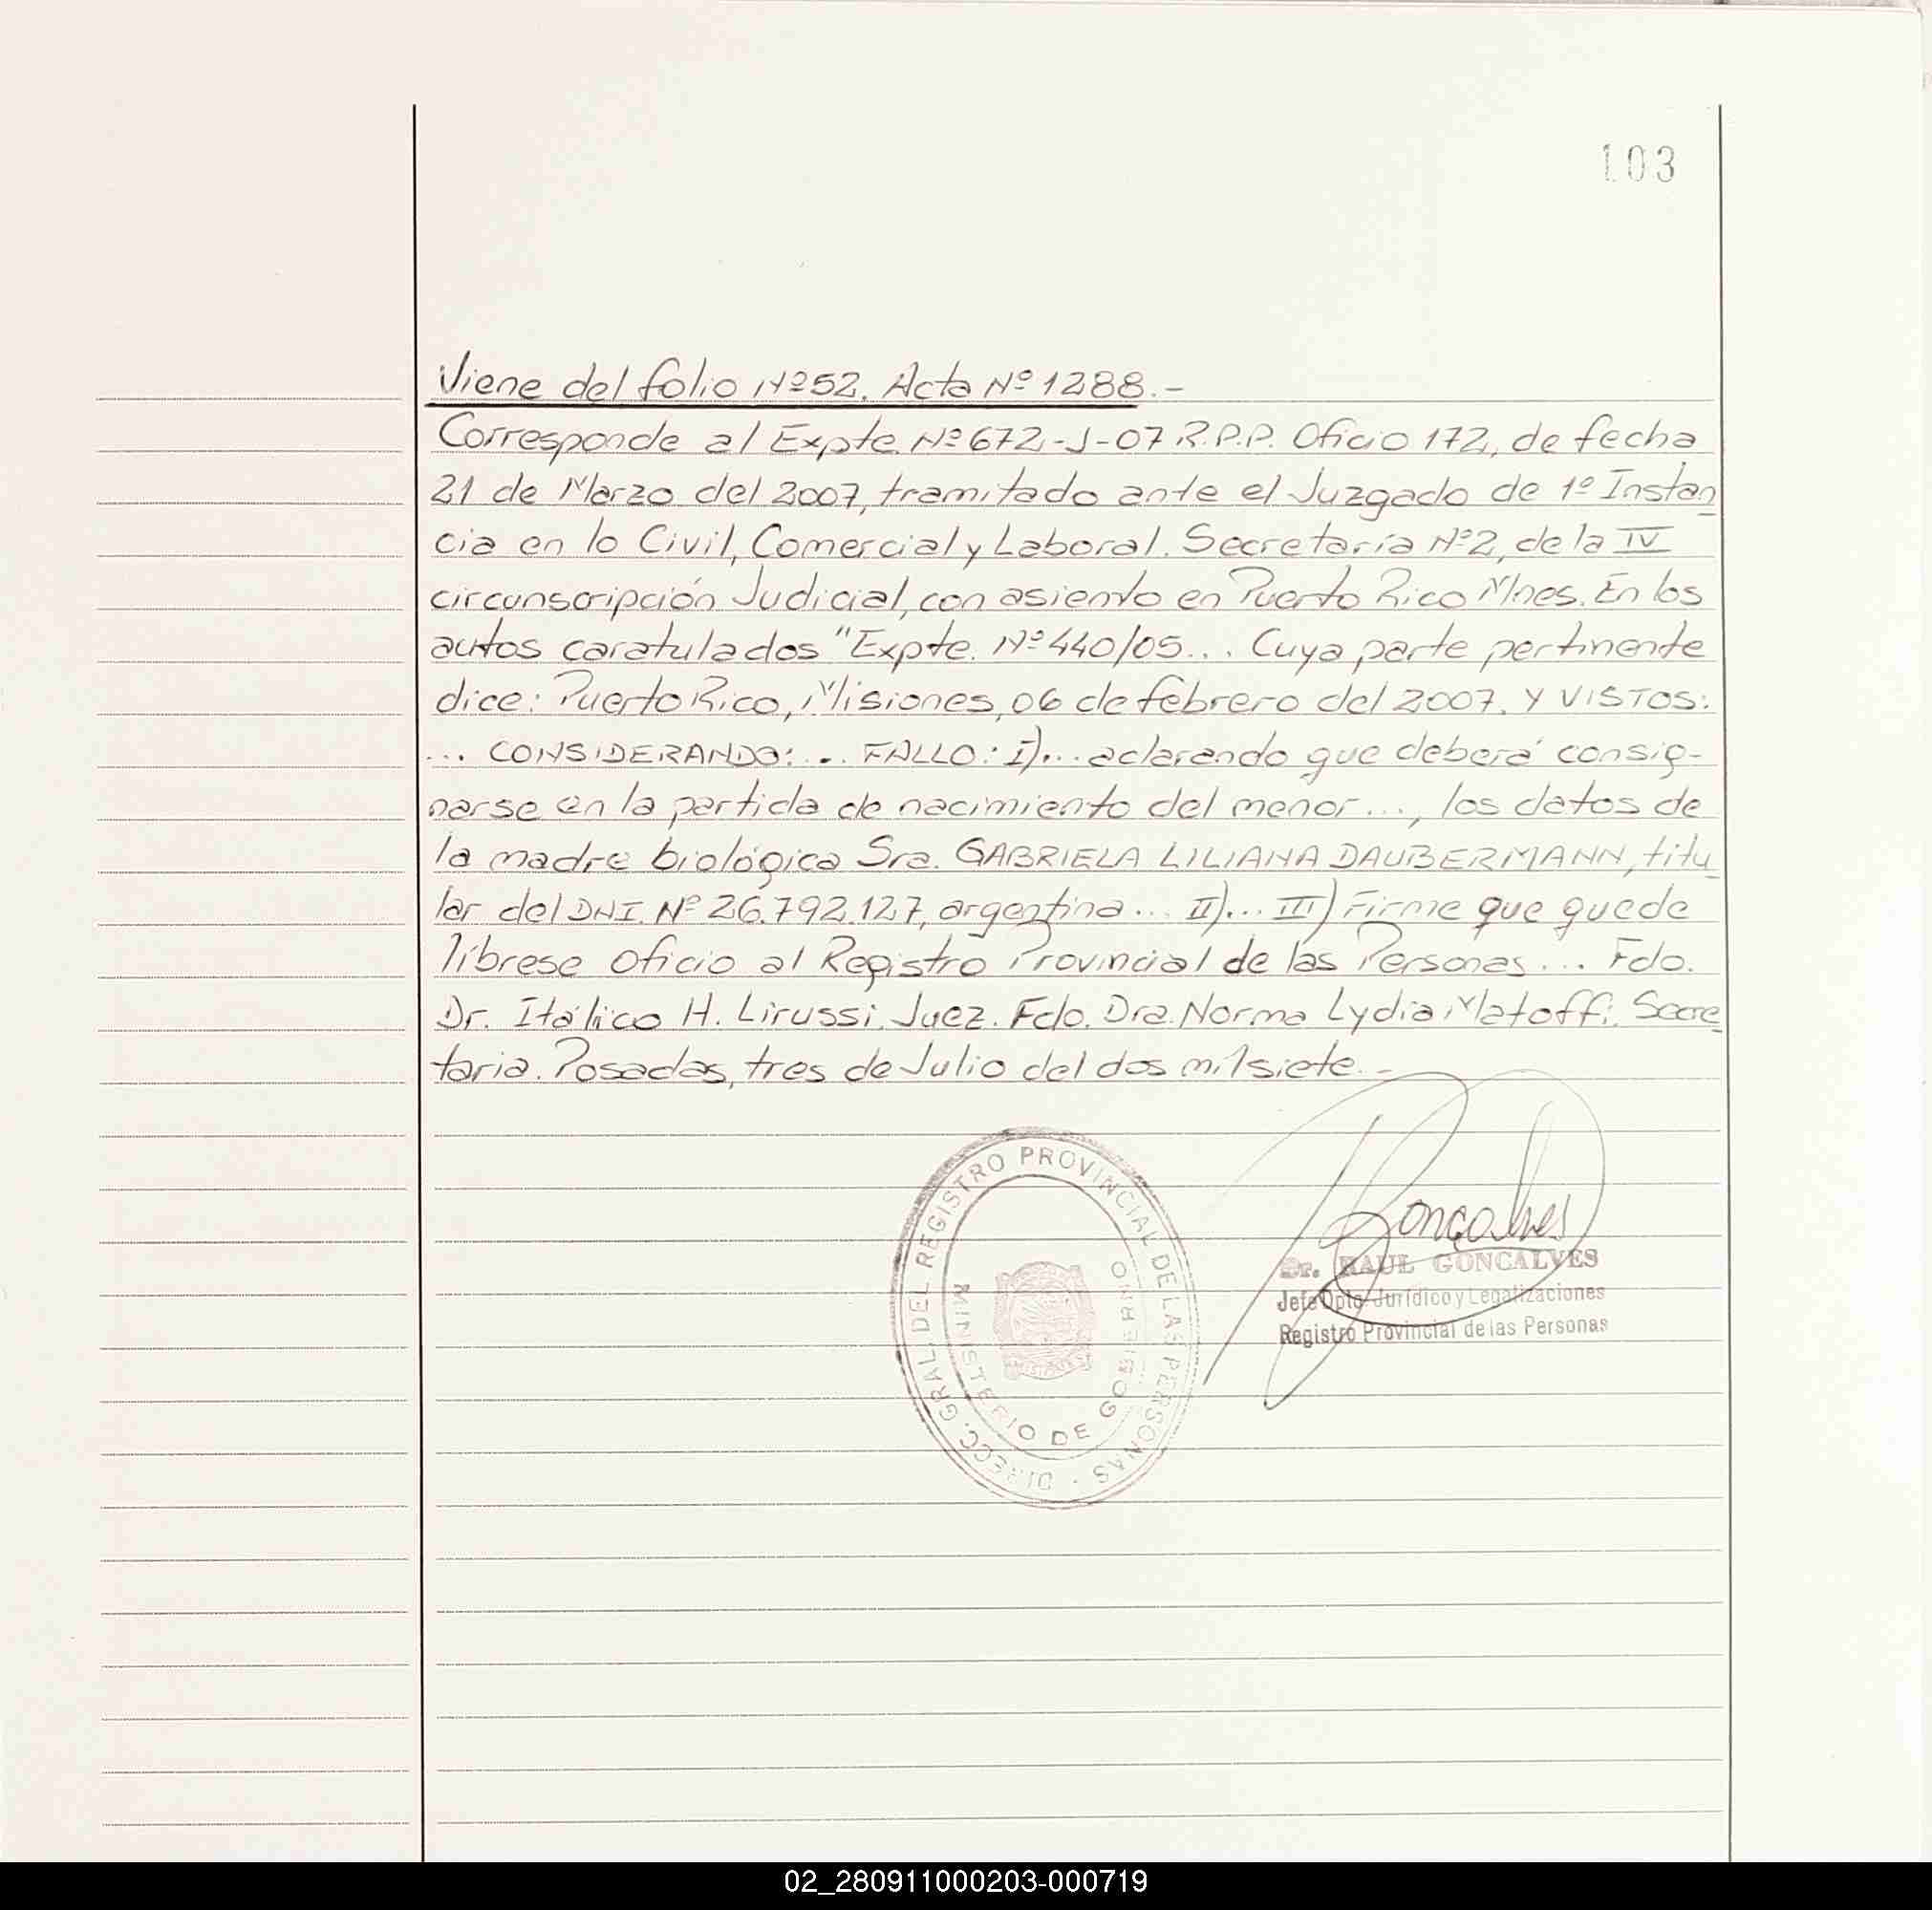 103
Viene del folio Nº 52. Acta Nº 1288.-
Corresponde al Expte. Nº 672-J-07 R.P.P. Oficio 172, de fecha
21 de Marzo del 2007, tramitado ante el Juzgado de 1º Instan
cia en lo Civil, Comercial y Laboral. Secretaría Nº 2, de la IV
circunscripción Judicial, con asiento en Puerto Rico Mnes. En los
autos caratulados "Expte. Nº 440/05... Cuya parte pertinente
dice: Puerto Rico, Misiones, 06 de febrero del 2007. Y VISTOS:
... CONSIDERANDO: ... FALLO: I)... aclarando que deberá consig-
narse en la partida de nacimiento del menor..., los datos de
la madre biológica Sra. GABRIELA LILIANA DAUBERMANN, titu
lar del DNI. Nº 26.792.127, argentina... II)... III) Firme que quede
líbrese oficio al Registro Provincial de las Personas... Fdo.
Dr. Itálico H. Lirussi. Juez. Fdo. Dra. Norma Lydia Matoffi. Secre
taria. Posadas, tres de Julio del dos mil siete.-
DIRECC. GRAL. DEL REGISTRO PROVINCIAL DE LAS PERSONAS
MINISTERIO DE GOBIERNO
Goncalves
Dr. RAUL GONCALVES
Jefe Dpto. Jurídico y Legalizaciones
Registro Provincial de las Personas
02_280911000203-000719